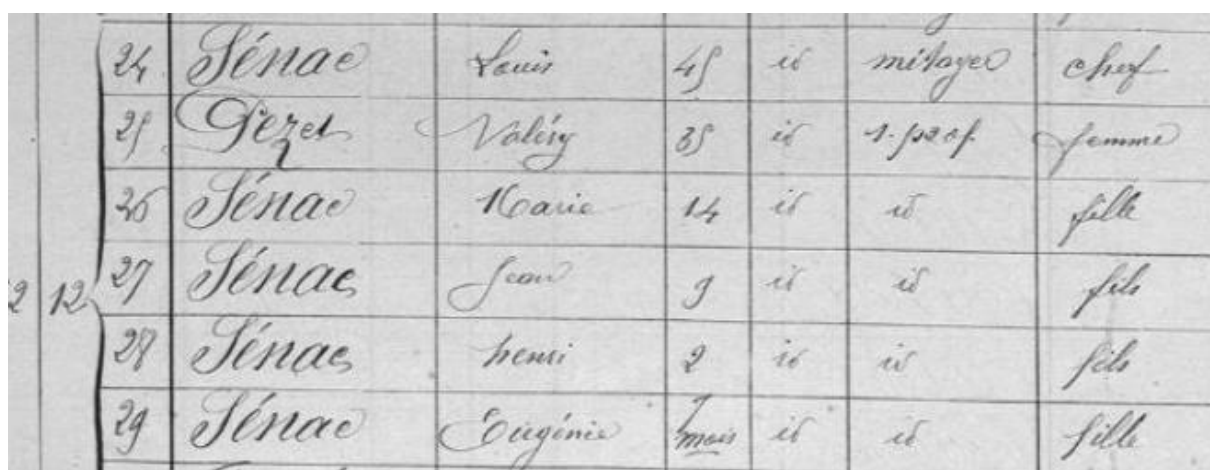 24 Sénac Louis 45 id métayer chef
25 Pezet Valéry 35 id s. prof. femme
26 Sénac Marie 14 id id fille
12 27 Sénac Jean 9 id id fils
28 Sénac henri 2 id id fils
29 Sénac Eugénie 7 mois id id fille